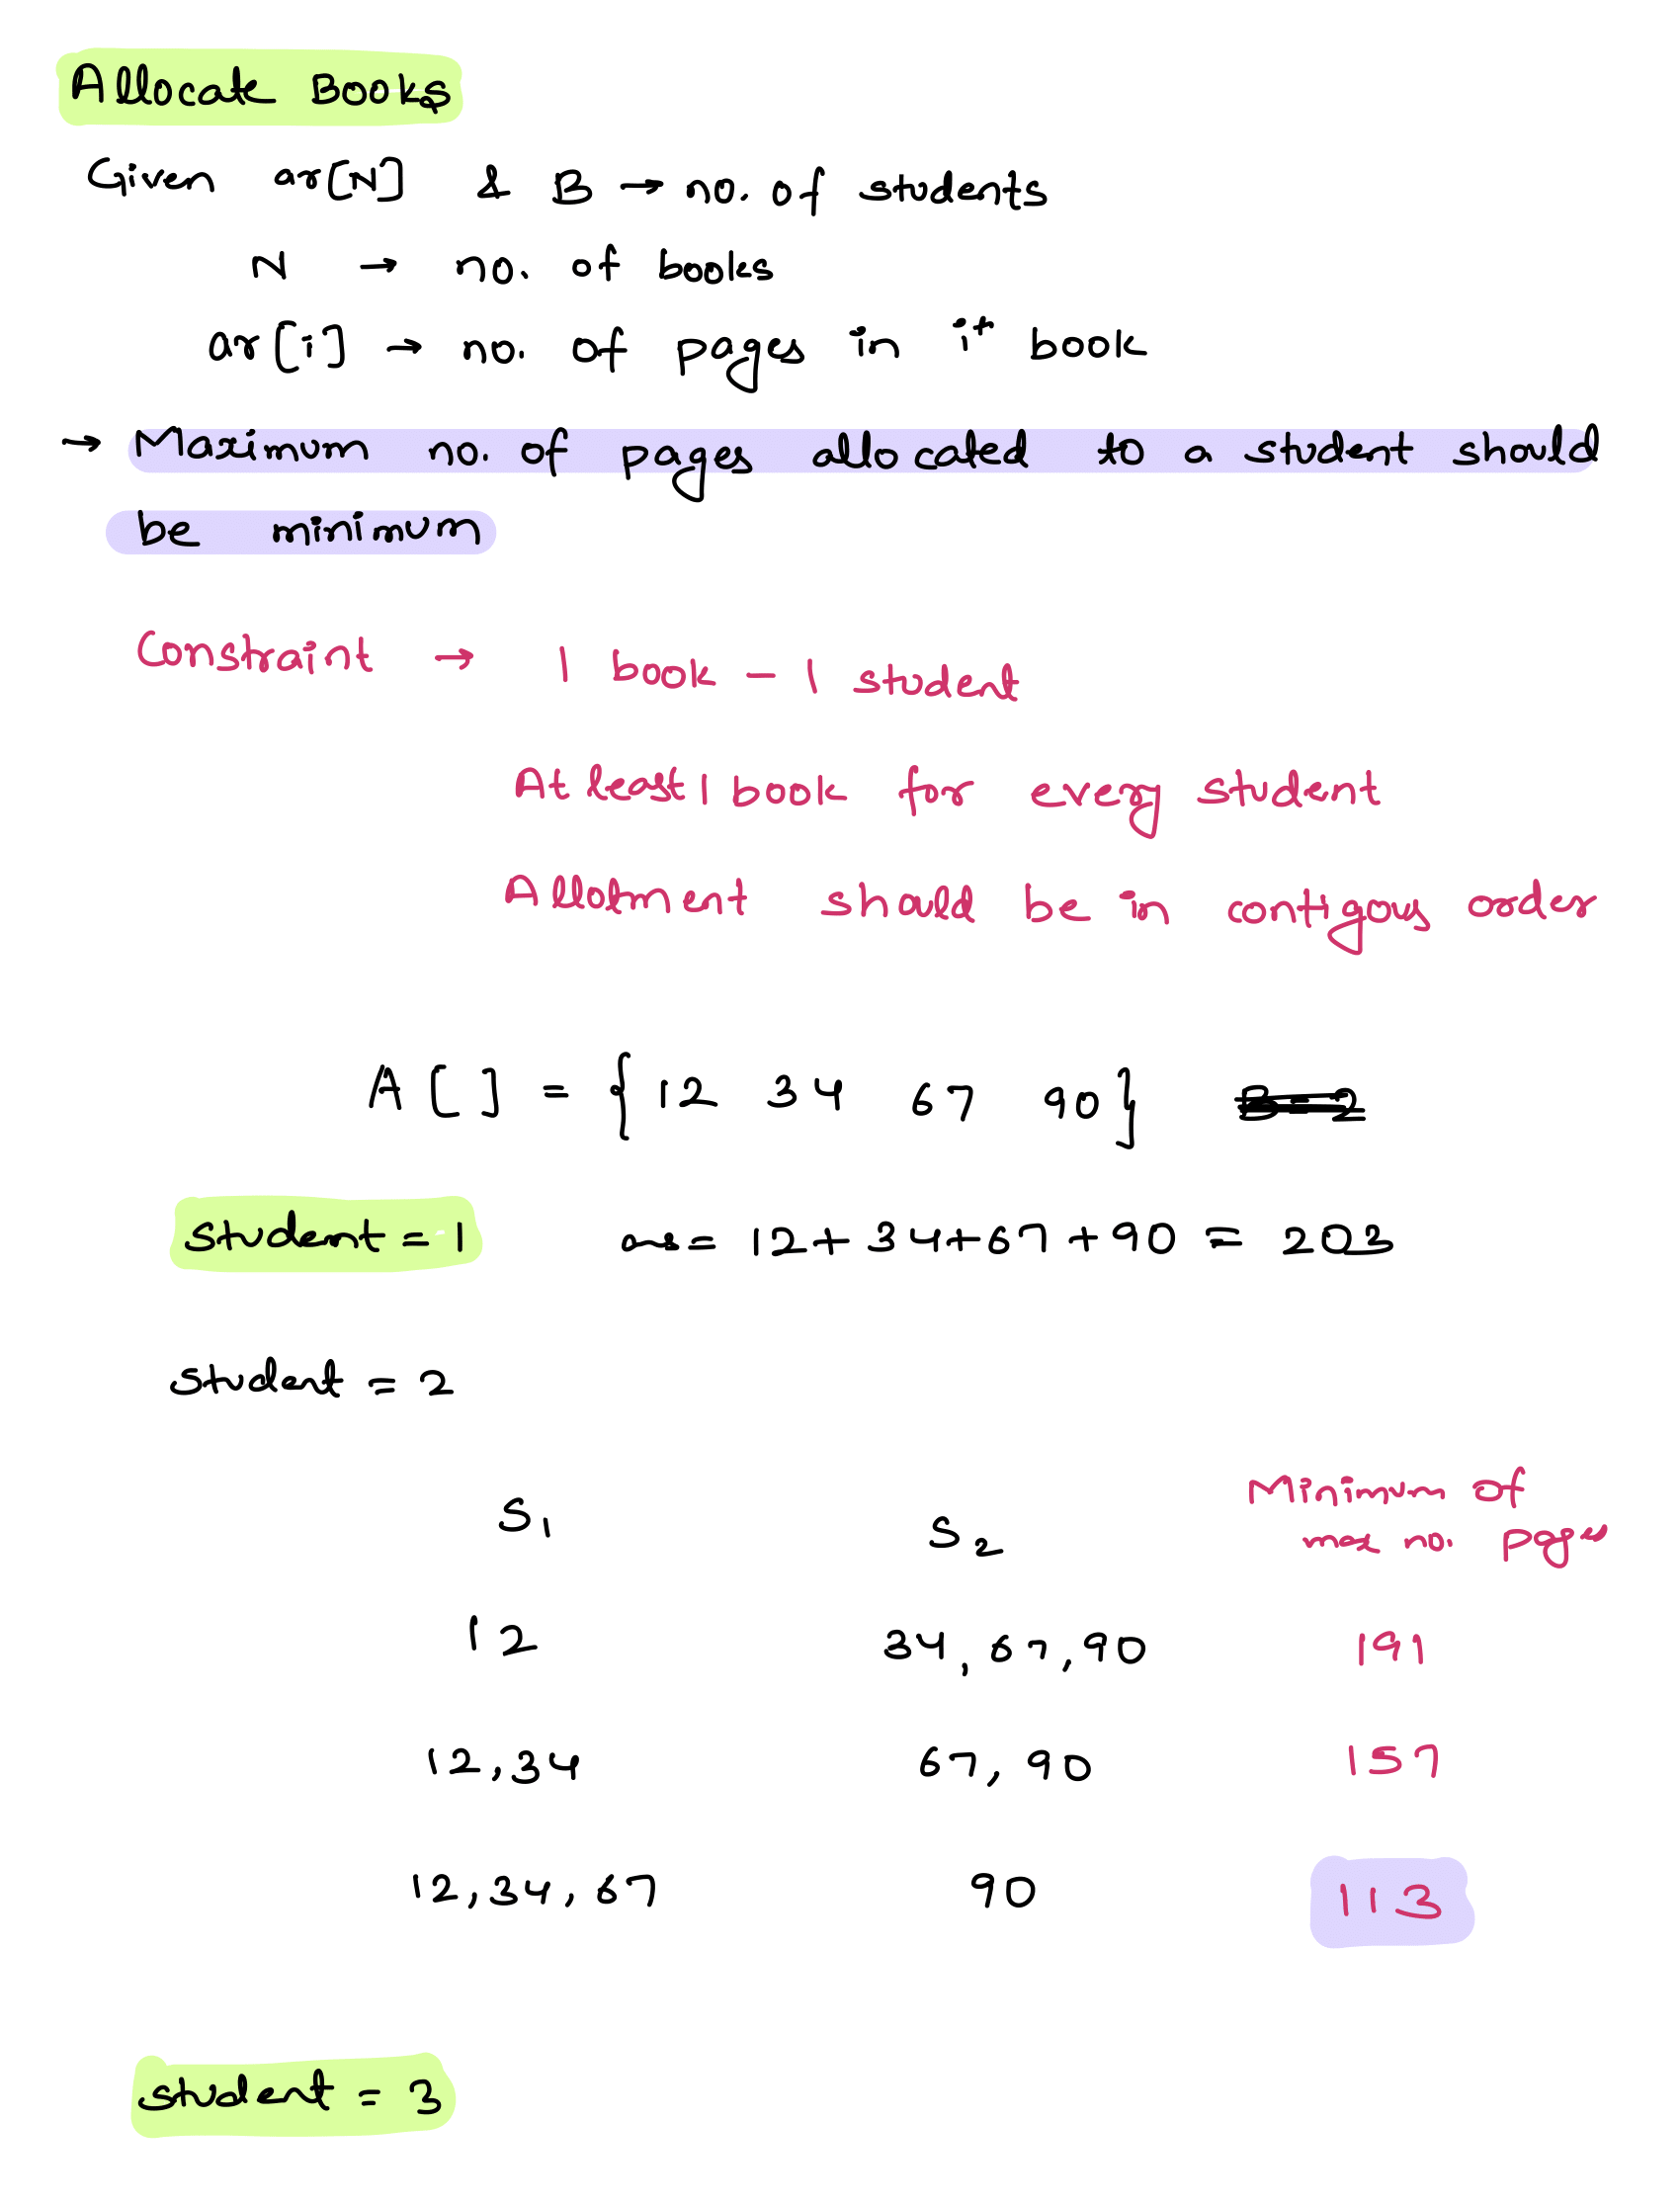 Allocate Books
Given ar[N] & B → no. of students
N → no. of books
ar[i] → no. of pages in iᵗ book
→ Maximum no. of pages allocated to a student should
be minimum
Constraint → 1 book - 1 student
At least 1 book for every student
Allotment should be in contigous order
A[ ] = { 12 34 67 90 } B = 2
student = 1 ans = 12 + 34 + 67 + 90 = 203
student = 2
S₁ S₂ Minimum of
max no. pages
12 34, 67, 90 191
12, 34 67, 90 157
12, 34, 67 90 113
student = 3